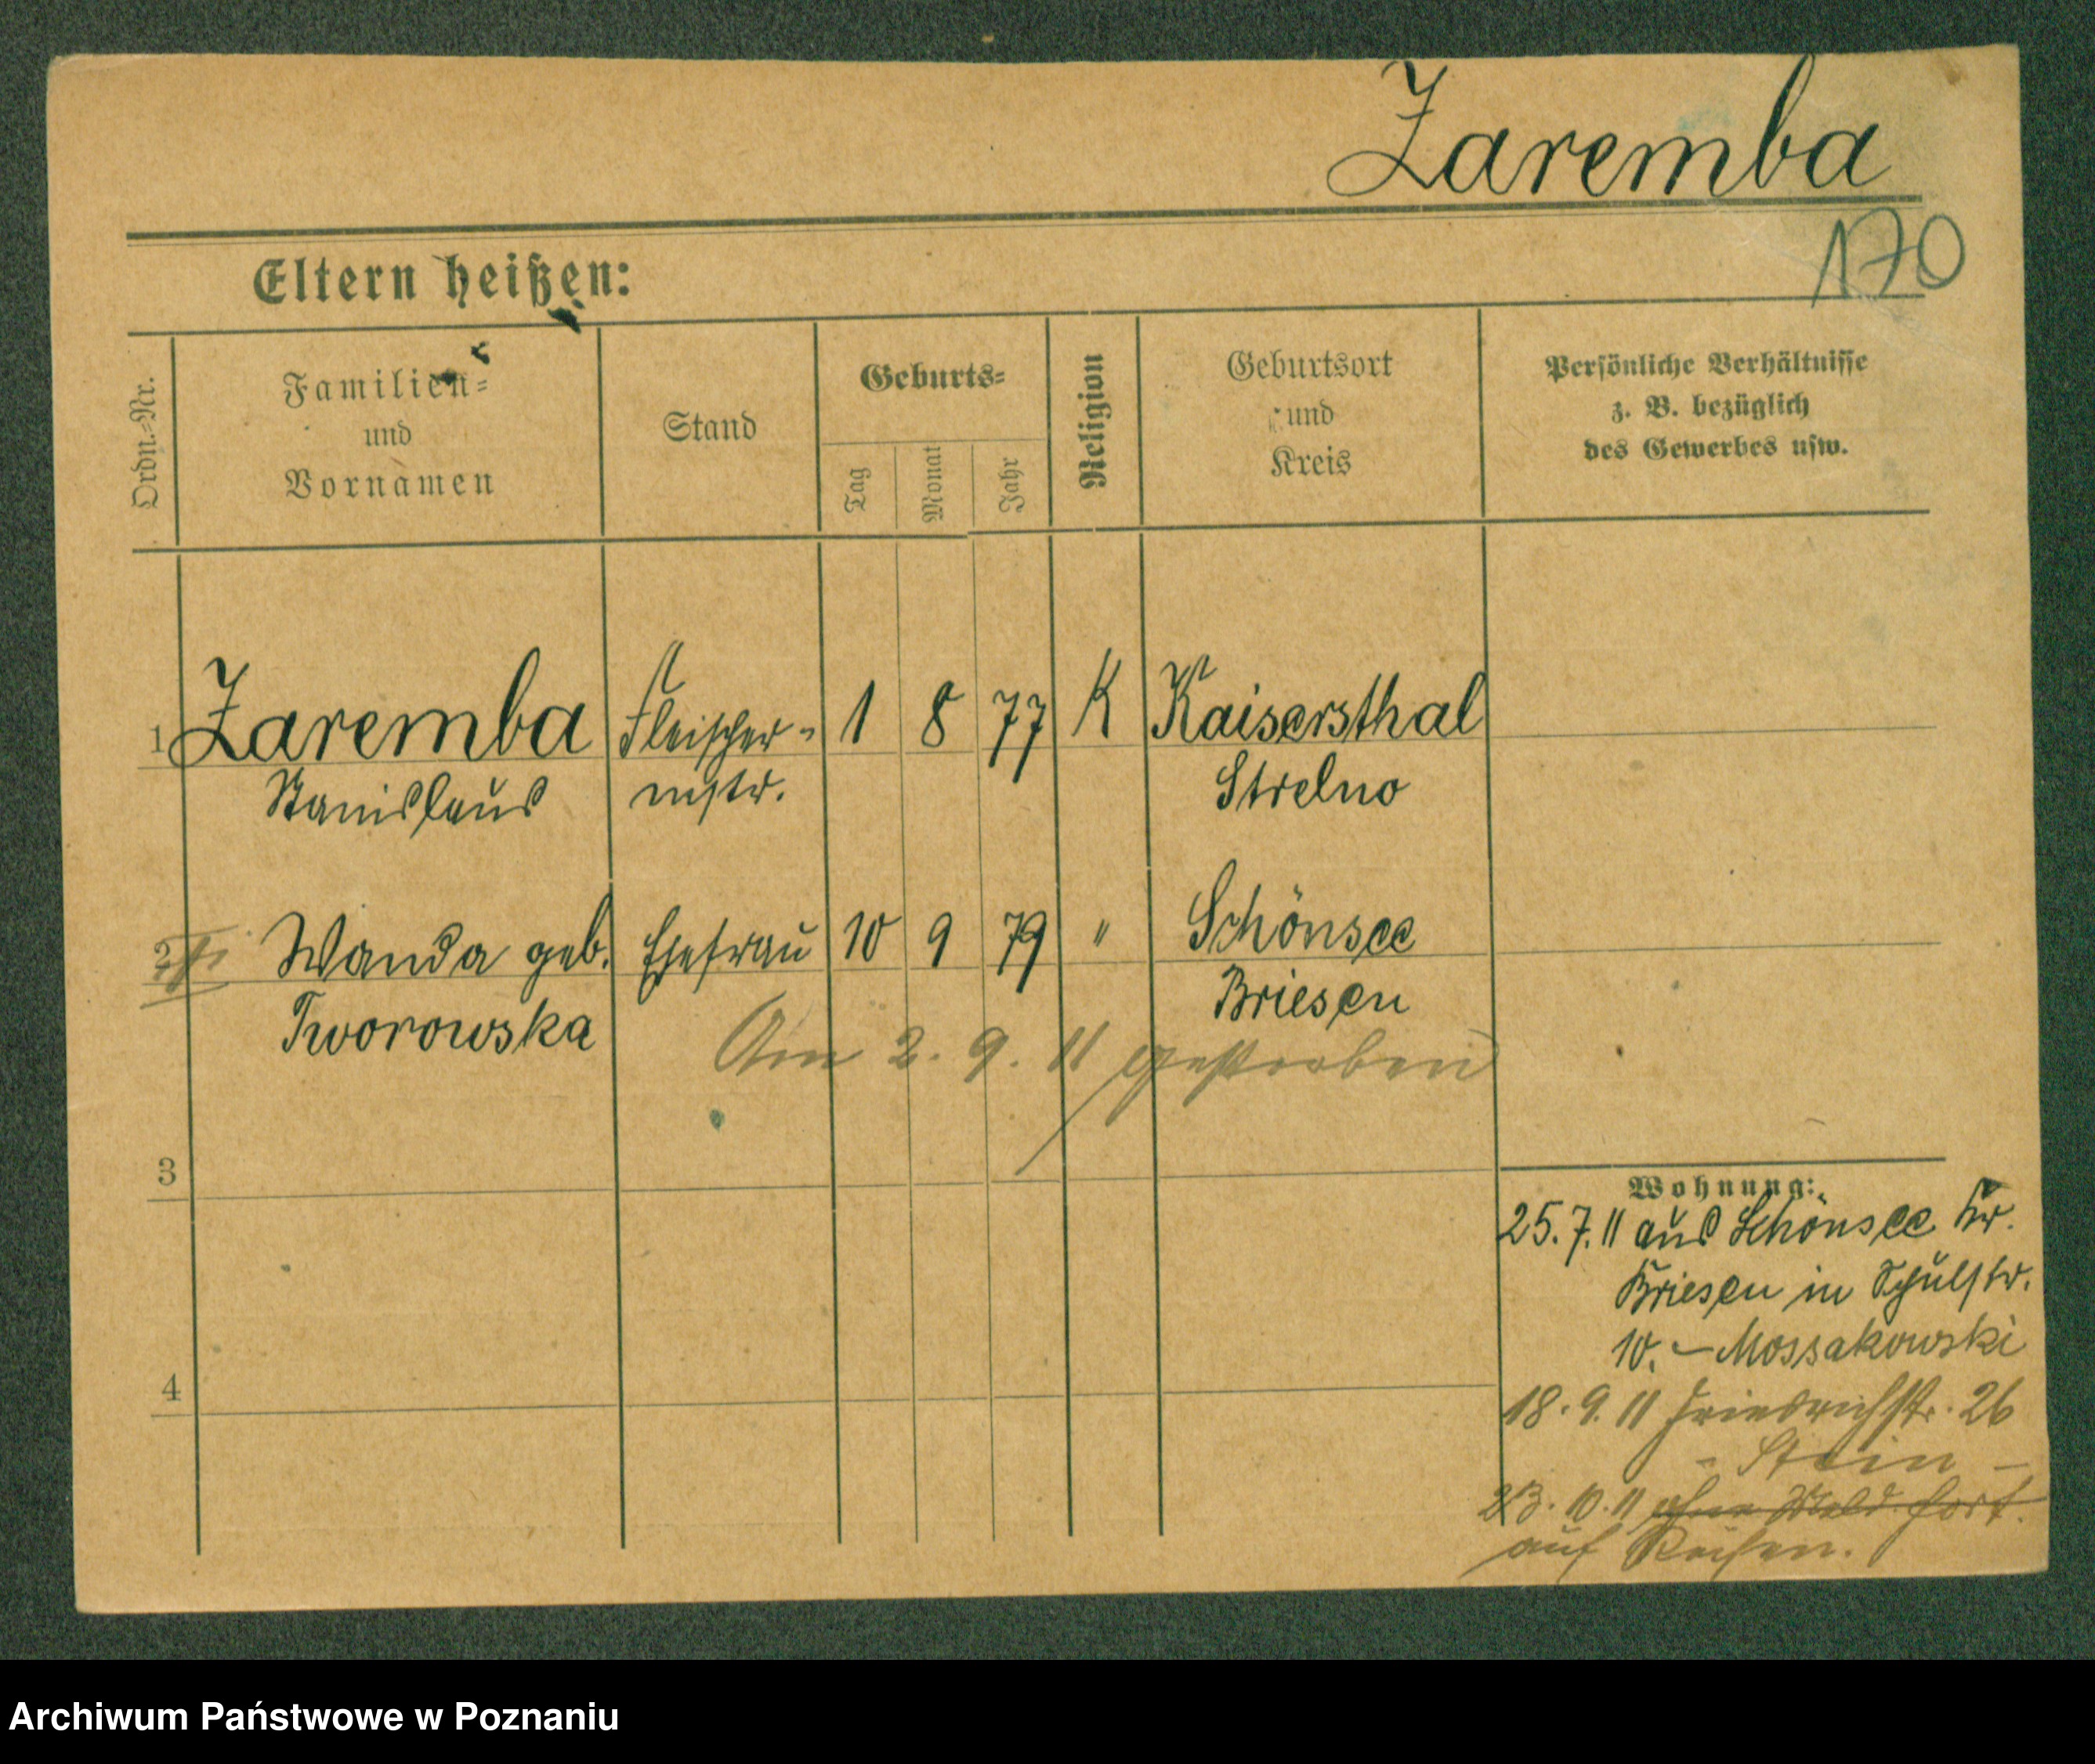 Zaremba
170
Eltern heißen:
Ordn.-Nr.
Familien-
und
Vornamen
Stand
Geburts-
Tag
Monat
Jahr
Religion
Geburtsort
und
Kreis
Persönliche Verhältnisse
z. B. bezüglich
des Gewerbes usw.
1 Zaremba Fleischer- 1 8 77 K Kaisersthal
Stanislaus mstr. Strelno
2 Wanda geb. Ehefrau 10 9 79 " Schönsee
Tworowska Briesen
Am 2. 9. 11 gestorben
3
4
Wohnung:
25.7.11 aus Schönsee Kr.
Briesen in Schulstr.
10. – Mossakowski
18.9.11 Friedrichstr. 26
- Stein -
23.10.11 ohne Meld. fort.
auf Reisen.
Archiwum Państwowe w Poznaniu